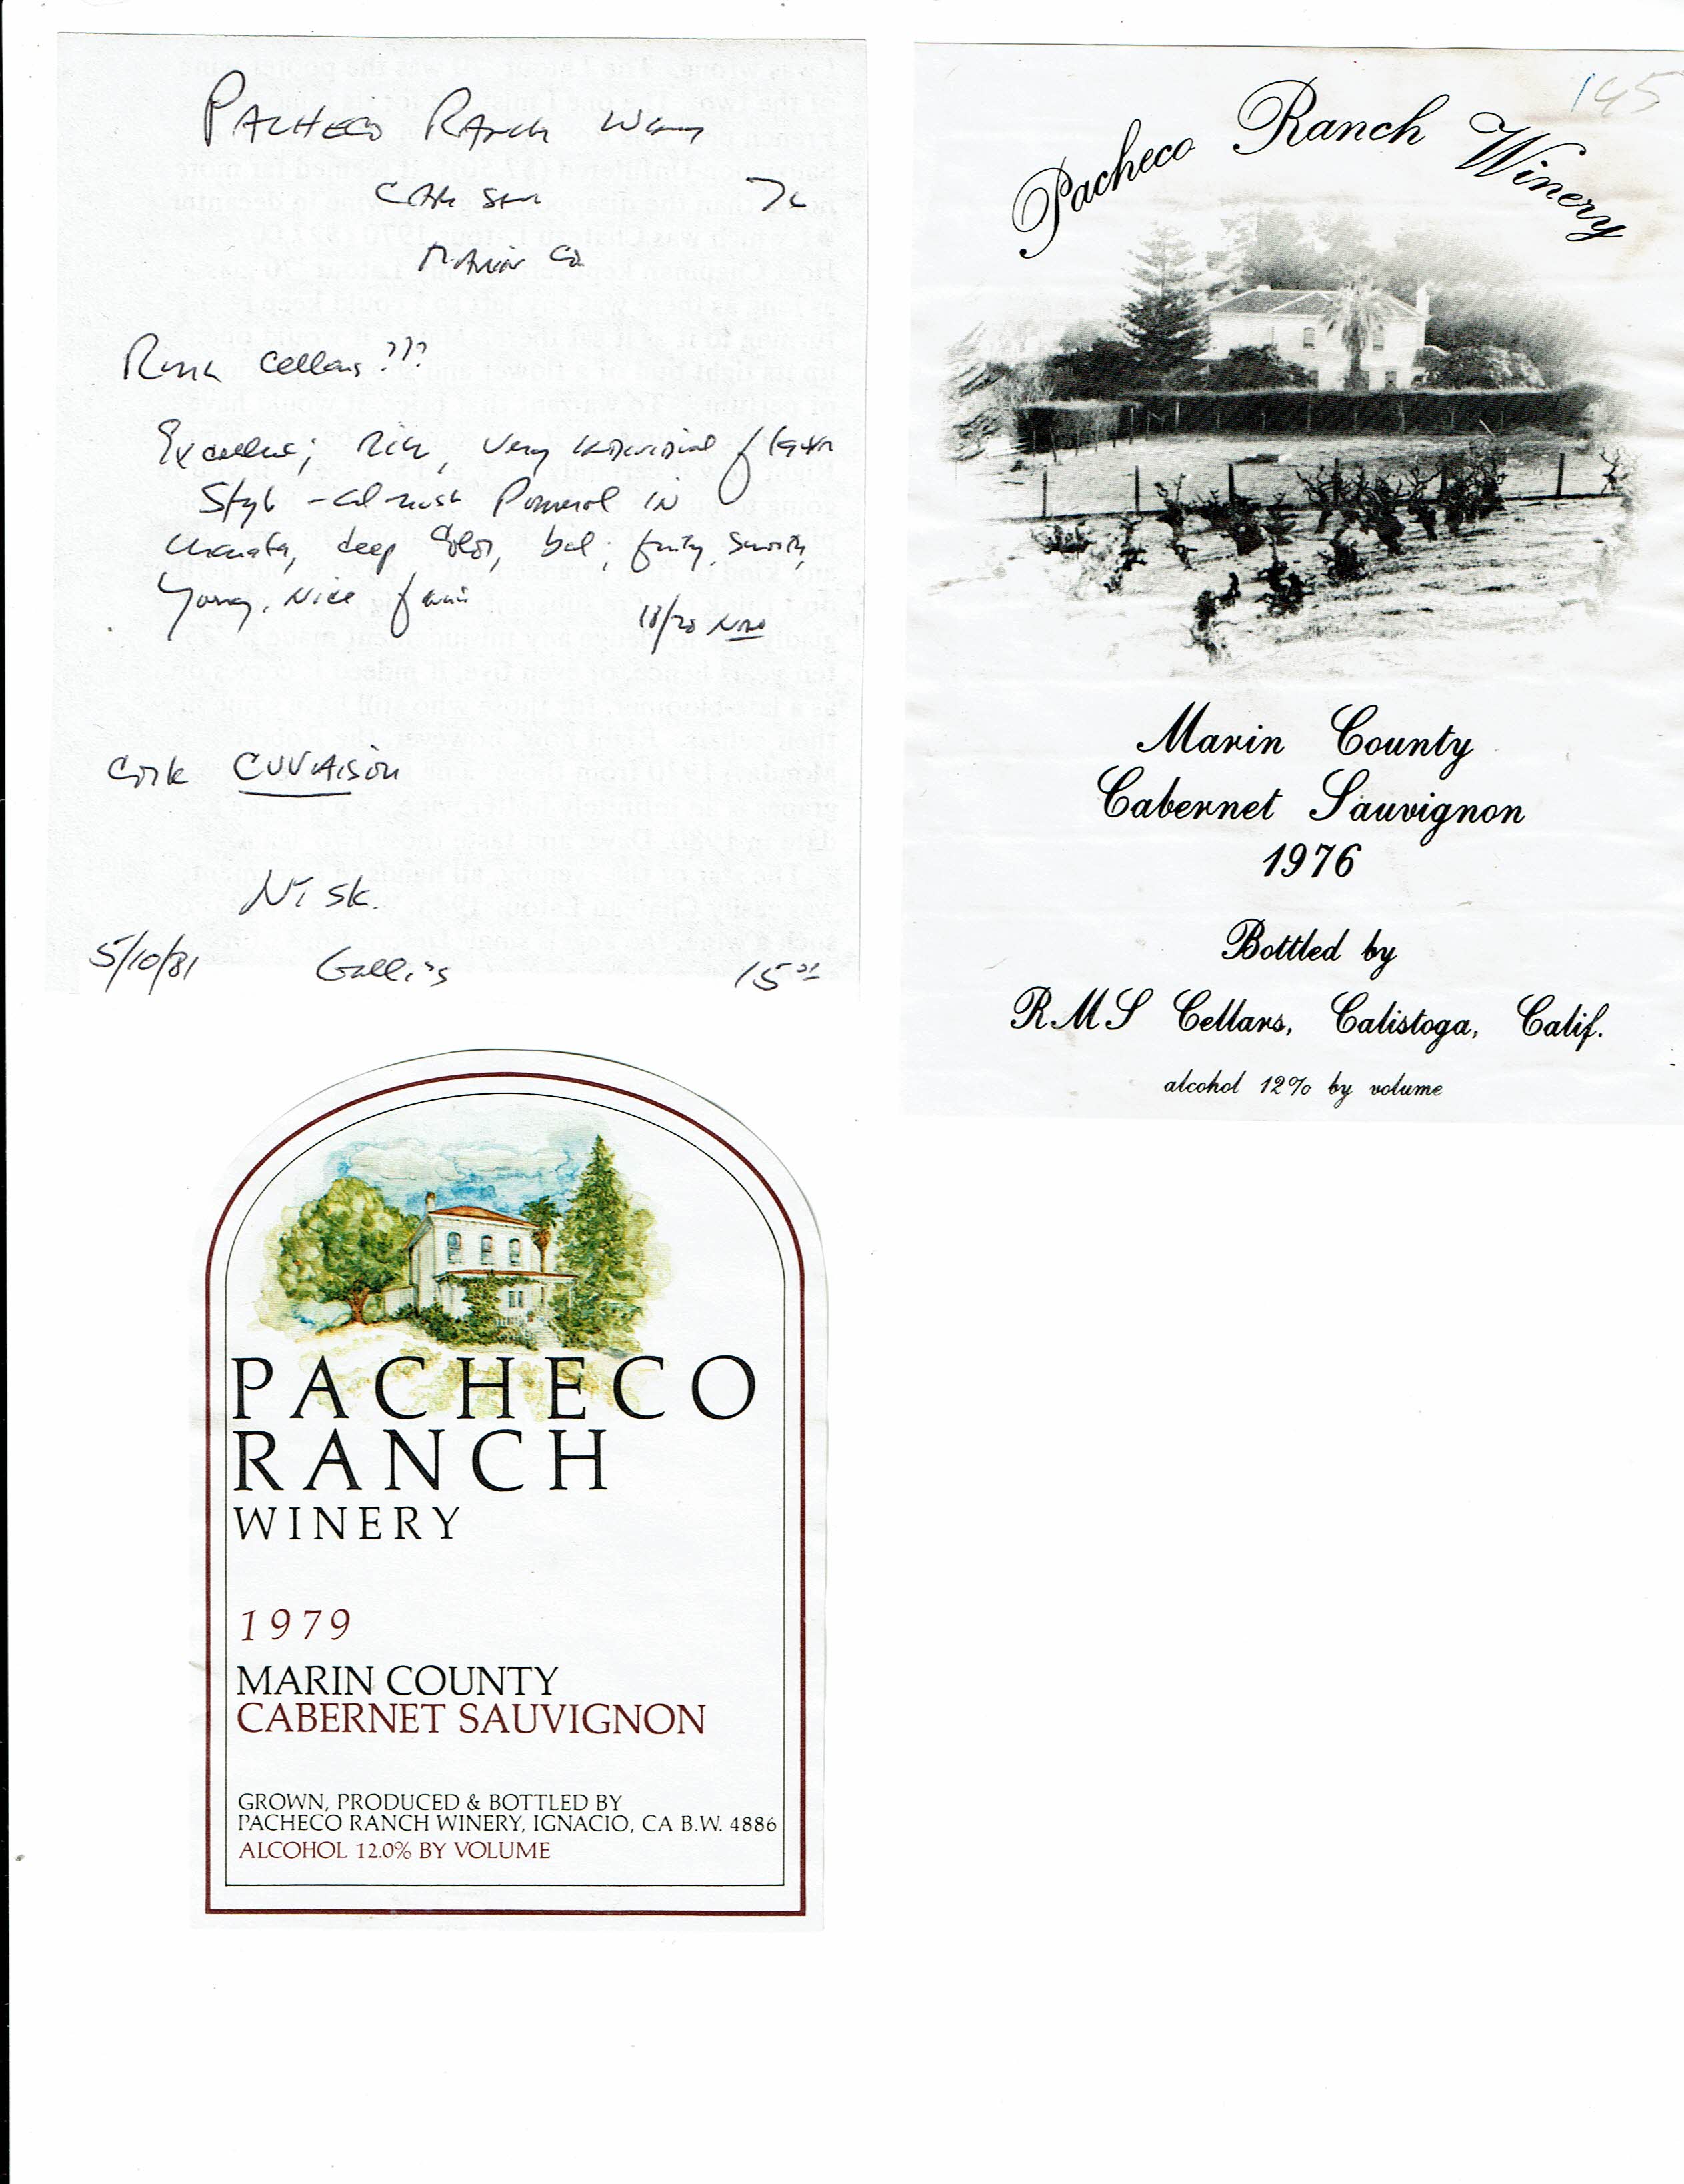 PACHECO RANCH Winery
CAB SAU 76
MARIN Co
Cellars???
Excellent; Rich, very individual
Style - almost Pomerol in
character, deep color, bal; fruity, smooth,
Young, Nice
18/20 NOW
Cork CUVAISON
5/10/81 Galli's 15
145
Pacheco Ranch Winery
Marin County
Cabernet Sauvignon
1976
Bottled by
RMS Cellars, Calistoga, Calif.
alcohol 12% by volume
PACHECO
RANCH
WINERY
1979
MARIN COUNTY
CABERNET SAUVIGNON
GROWN, PRODUCED & BOTTLED BY
PACHECO RANCH WINERY, IGNACIO, CA B.W. 4886
ALCOHOL 12.0% BY VOLUME